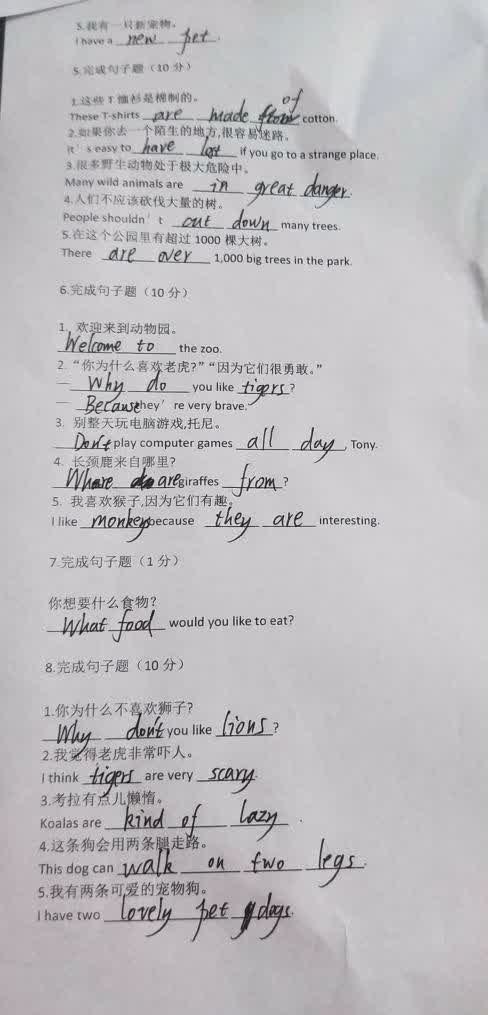 5.我有一只新宠物。
I have a new pet.
5.完成句子题（10 分）
1.这些 T 恤衫是棉制的。
of
These T-shirts are made from cotton.
2.如果你去一个陌生的地方,很容易迷路。
It's easy to have lost if you go to a strange place.
3.很多野生动物处于极大危险中。
Many wild animals are in great danger.
4.人们不应该砍伐大量的树。
People shouldn't cut down many trees.
5.在这个公园里有超过 1000 棵大树。
There are over 1,000 big trees in the park.
6.完成句子题（10 分）
1. 欢迎来到动物园。
Welcome to the zoo.
2. “你为什么喜欢老虎?”“因为它们很勇敢。”
— Why do you like tigers?
— Because they're very brave.
3. 别整天玩电脑游戏,托尼。
Don't play computer games all day, Tony.
4. 长颈鹿来自哪里?
Where are giraffes from?
5. 我喜欢猴子,因为它们有趣。
I like monkeys because they are interesting.
7.完成句子题（1 分）
你想要什么食物?
What food would you like to eat?
8.完成句子题（10 分）
1.你为什么不喜欢狮子?
Why don't you like lions?
2.我觉得老虎非常吓人。
I think tigers are very scary.
3.考拉有点儿懒惰。
Koalas are kind of lazy.
4.这条狗会用两条腿走路。
This dog can walk on two legs.
5.我有两条可爱的宠物狗。
I have two lovely pet dogs.